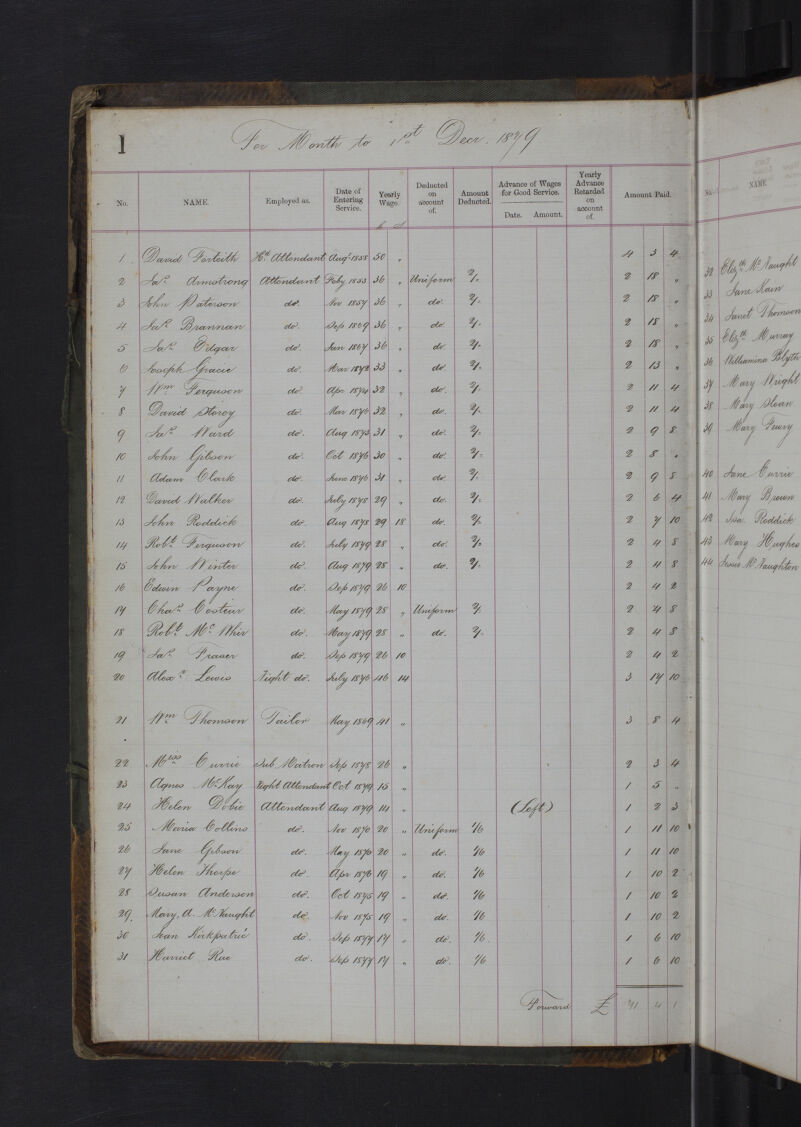 1
For Month to 1st Decr. 1879
No. NAME. Employed as. Date of Entering Service. Yearly Wage. Deducted on account of. Amount Deducted. Advance of Wages for Good Service. Date. Amount. Yearly Advance Retarded on account of. Amount Paid.
£ s
1 David Forteith Hd. Attendant Augt 1858 50 " 4 3 4
2 Jas. Armstrong Attendant Feby 1853 36 " Uniform 2/. 2 18 "
3 John Paterson do. Nov 1857 36 " do. 2/. 2 18 "
4 Jas. Brannan do. Sep 1869 36 " do 2/. 2 18 "
5 Jas. Edgar do. Jan 1867 36 " do 2/. 2 18 "
6 Joseph Gracie do. Mar 1872 33 " do 2/. 2 13 "
7 Wm Ferguson do. Apr 1874 32 " do. 2/. 2 11 4
8 David Storey do. Mar 1876 32 " do. 2/. 2 11 4
9 Jas. Ward do. Aug 1875 31 " do. 2/. 2 9 8
10 John Gibson do. Oct 1876 30 " do. 2/. 2 8 "
11 Adam Clark do. June 1876 31 " do 2/. 2 9 8
12 David Walker do. July 1878 29 " do. 2/. 2 6 4
13 John Roddick do. Aug 1878 29 18 do. 2/. 2 7 10
14 Robt. Ferguson do. July 1879 28 " do. 2/. 2 4 8
15 John Winter do. Aug 1879 28 " do. 2/. 2 4 8
16 Edwin Payne do. Sep 1879 26 10 2 4 2
17 Chas. Costeur do. May 1879 28 " Uniform 2/. 2 4 8
18 Robt. Mc.Whir do. May 1879 28 " do. 2/. 2 4 8
19 Jas. Fraser do. Sep 1879 26 10 2 4 2
20 Alexr. Lewis Night do. July 1876 46 14 3 17 10
21 Wm Thomson Tailor May 1869 41 " 3 8 4
22 Miss Currie Sub Matron Sep 1878 26 " 2 3 4
23 Agnes McKay Night Attendant Oct 1879 15 " 1 5 "
24 Helen Dobie Attendant Aug 1879 14 " (Left) 1 2 3
25 Maria Collins do. Nov 1870 20 " Uniform 1/6 1 11 10
26 Jane Gibson do. May 1876 20 " do. 1/6 1 11 10
27 Helen Thorpe do. Apr 1876 19 " do. 1/6 1 10 2
28 Susan Anderson do. Oct 1875 19 " do. 1/6 1 10 2
29. Mary. A. McNaught do Nov 1875 19 " do. 1/6 1 10 2
30 Jean Kirkpatric do. Sep 1877 17 " do. 1/6. 1 6 10
31 Harriet Rae do. Sep 1877 17 " do. 1/6 1 6 10
Forward £ 71 4 1
No. NAME
32 Elizth. Mc.Naught
33 Jane Kain
34 Janet Thomson
35 Elizth. Murray
36 Williamina Blyth
37 Mary Wright
38 Mary Sloan
39 Mary Feury
40 Jane Currie
41 Mary Brown
42 Isa. Roddick
43 Mary Hughes
44 Jessie McNaughton